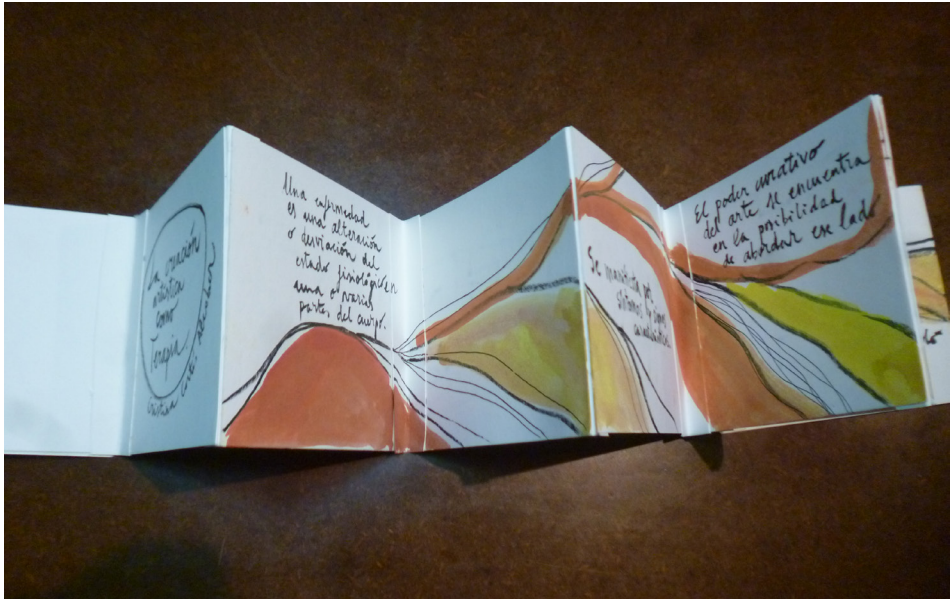 La creación
artística
como
Terapia.
Cristina
Una enfermedad
es una alteración
o desviación del
estado fisiológico en
una o varias
partes del cuerpo.
Se manifiesta por
síntomas y signos
característicos.
El poder curativo
del arte se encuentra
en la posibilidad
de abordar ese lado